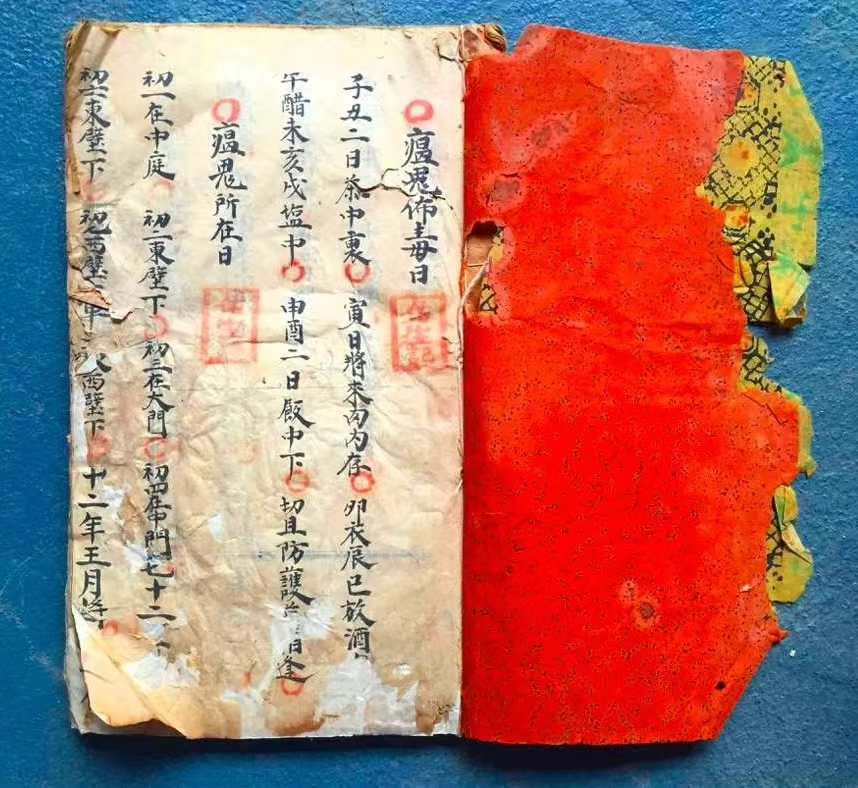 瘟鬼佈毒日
子丑二日茶中裏 寅日將來肉内存 卯衣辰巳放酒
午醋未亥戌塩中 申酉二日飯中下 切且防 逢
瘟鬼所在日
初一在中庭 初二東壁下 初三在大門 初四在中門 七十二
初六東壁下 西壁 西壁下 十二年五月